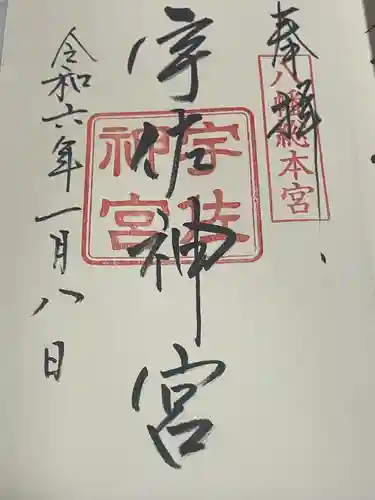 奉拝
八幡総本宮
宇佐神宮
宇佐
神宮
令和六年一月八日